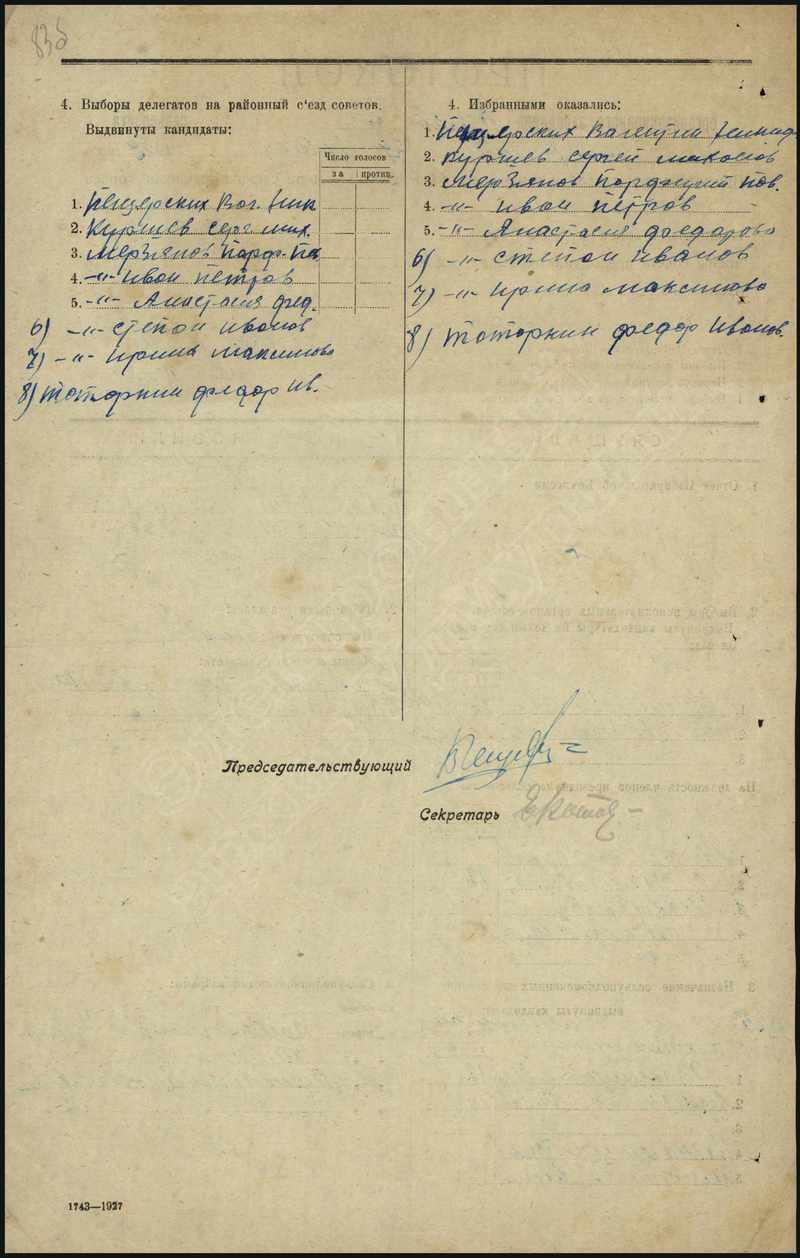 835
4. Выборы делегатов на районный с'езд советов.
Выдвинуты кандидаты:
Число голосов
за против.
1. Пещерских Вал.
2. Курышев серг. мих.
3. Мерзляков Парф. Па
4. -"- Иван петров
5. -"- Анастасия фед.
6) -"- степон иванов
7) -"- Ирина максимова
8) Тоторкин федор ив.
4. Избранными оказались:
1. Пещерских Валентин
2. Курышев сергей михайлов
3. Мерзляков Парфентий пов.
4. -"- иван петров
5. -"- Анастасия федорова
6) -"- степон иванов
7) -"- Ирина максимова
8) Тоторкин федор Иванов.
Председательствующий
Секретарь
1743—1927